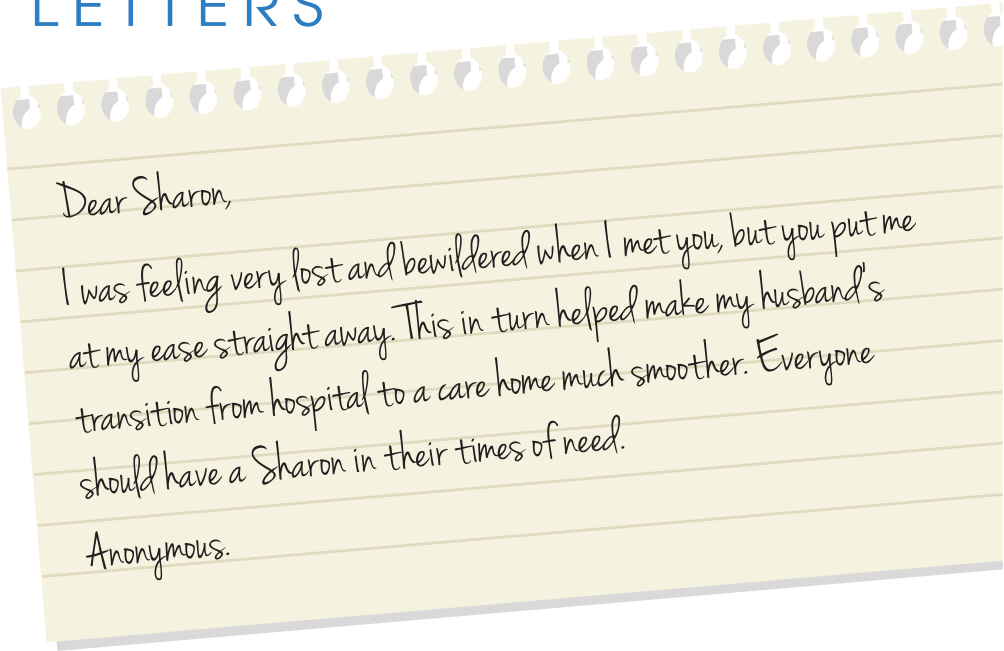 LETTERS
Dear Sharon,
I was feeling very lost and bewildered when I met you, but you put me
at my ease straight away. This in turn helped make my husband's
transition from hospital to a care home much smoother. Everyone
should have a Sharon in their times of need.
Anonymous.